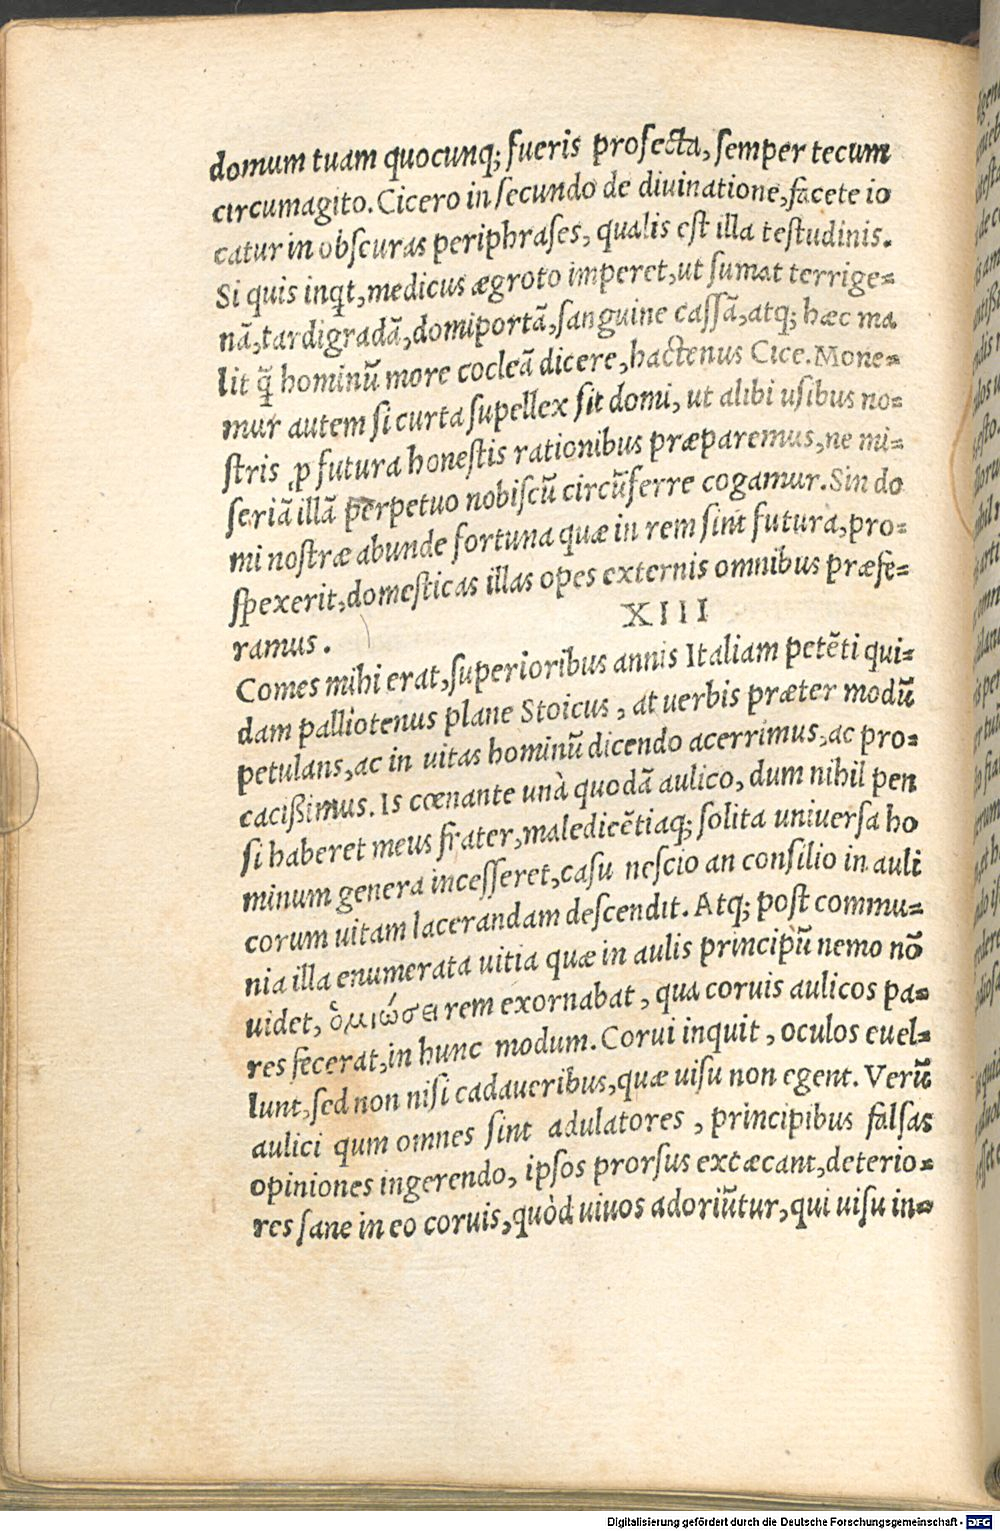 domum tuam quocunq; fueris profecta, semper tecum
circumagito. Cicero in secundo de diuinatione, facete io
catur in obscuras periphrases, qualis est illa testudinis.
Si quis inqt, medicus ægroto imperet, ut sumat terrige=
nã, tardigradã, domiportã, sanguine cassã, atq; hæc ma
lit q̃ hominũ more cocleã dicere, hactenus Cice. Mone=
mur autem si curta supellex sit domi, ut alibi usibus no=
stris ꝓ futura honestis rationibus præparemus, ne mi=
seriã illã perpetuo nobiscũ circũferre cogamur. Sin do
mi nostræ abunde fortuna quæ in rem sint futura, pro=
spexerit, domesticas illas opes externis omnibus præfe=
ramus.
XIII
Comes mihi erat, superioribus annis Italiam petẽti qui=
dam palliotenus plane Stoicus, at uerbis præter modũ
petulans, ac in uitas hominũ dicendo acerrimus, ac pro=
cacißimus. Is cœnante unà quodã aulico, dum nihil pen
si haberet meus frater, maledicẽtiaq; solita uniuersa ho
minum genera incesseret, casu nescio an consilio in auli
corum uitam lacerandam descendit. Atq; post commu=
nia illa enumerata uitia quæ in aulis principũ nemo nõ
uidet, ὁμιώσει rem exornabat, qua coruis aulicos pa=
res fecerat, in hunc modum. Corui inquit, oculos euel=
lunt, sed non nisi cadaueribus, quæ uisu non egent. Verũ
aulici qum omnes sint adulatores, principibus falsas
opiniones ingerendo, ipsos prorsus excæcant, deterio=
res sane in eo coruis, quòd uiuos adoriũtur, qui uisu in=
Digitalisierung gefördert durch die Deutsche Forschungsgemeinschaft - DFG